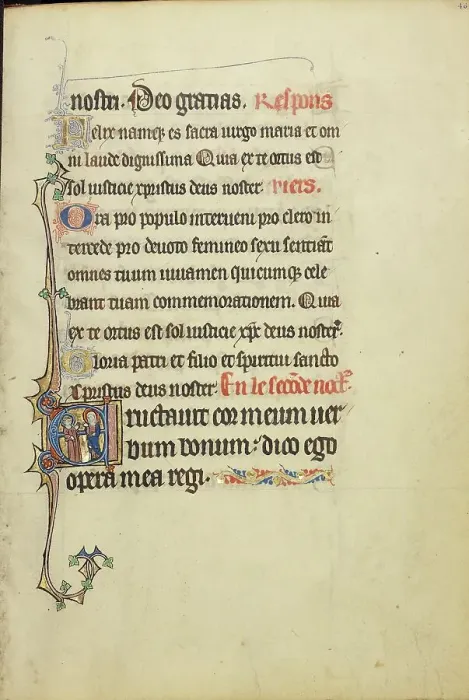 nostri. Deo gratias. Respons
Felix namq; es sacra uirgo maria et om
ni laude dignissima Quia ex te ortus est
sol iusticie xpistus deus noster. vers.
Ora pro populo interueni pro clero in
tercede pro deuoto femineo sexu sentiāt
omnes tuum iuuamen quicumq; cele
brant tuam commemorationem. Quia
ex te ortus est sol iusticie xp̄c deus noster.
Gloria patri et filio et spiritui sancto
Cpristus deus noster. En le secōde noct.
Eructauit cor meum uer
bum bonum: dico ego
opera mea regi.